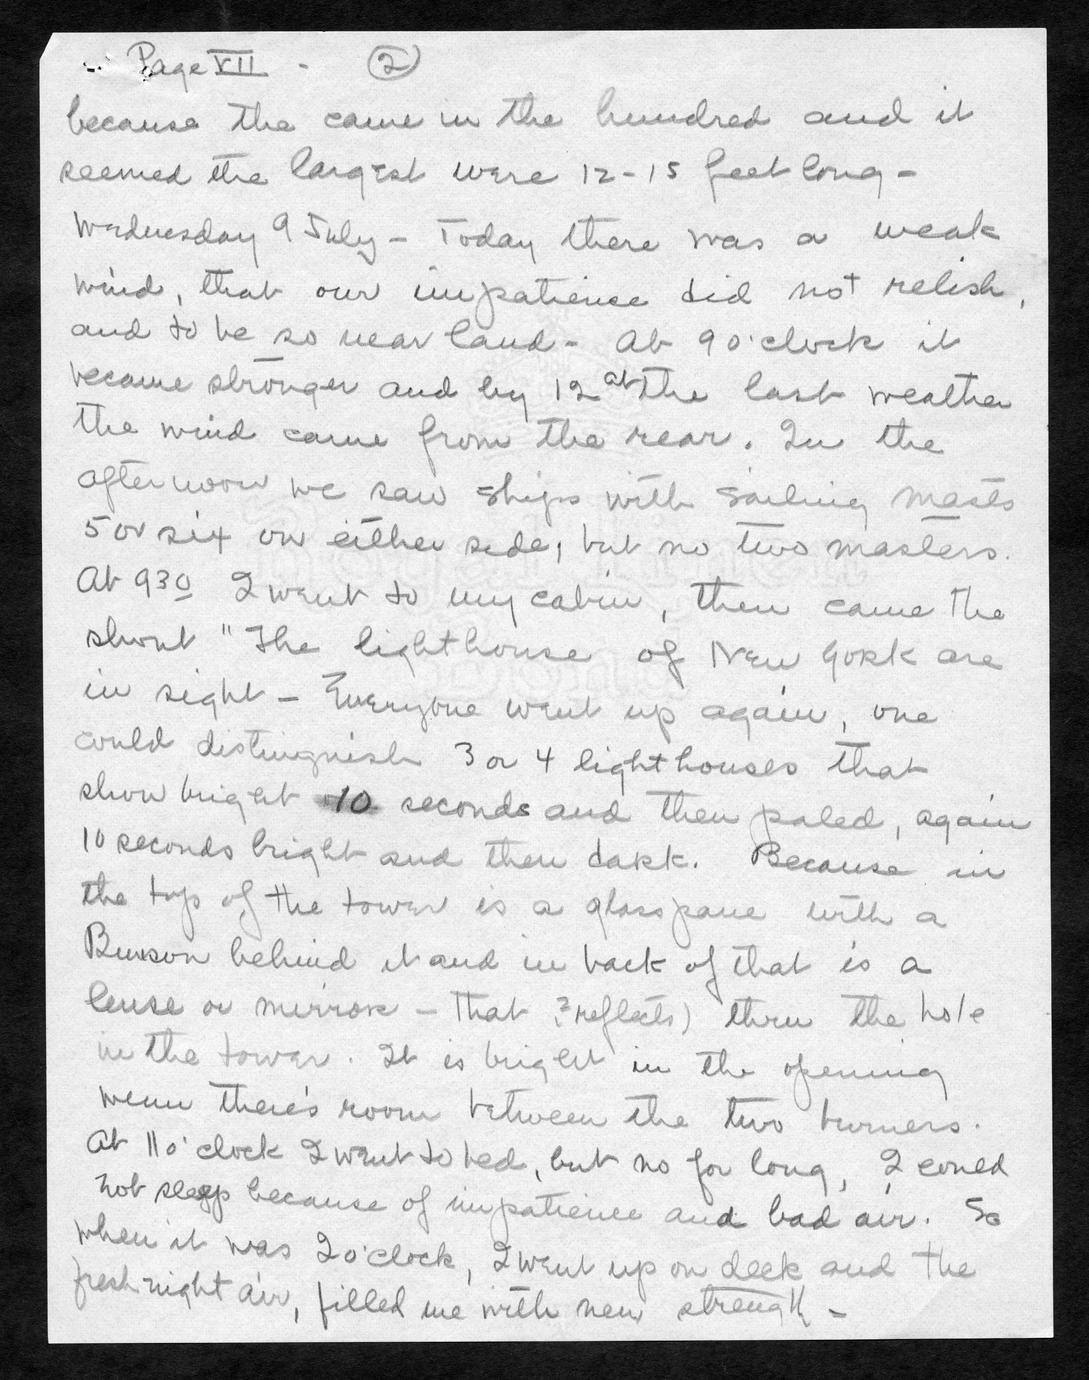 Page VII - 2
because the came in the hundred and it
seemed the largest were 12-15 feet long -
Wednesday 9 July - Today there was a weak
wind, that our impatience did not relish,
and to be so near land - At 9 o'clock it
became stronger and by 12 at the last weather
the wind came from the rear. In the
afternoon we saw ships with sailing masts
5 or six on either side, but no two masters.
At 930 I went to my cabin, then came the
shout "The lighthouse of New York are
in sight - Everyone went up again, one
could distinguish 3 or 4 lighthouses that
show bright 10 seconds and then paled, again
10 seconds bright and then dark. Because in
the top of the tower is a glass pane with a
behind it and in back of that is a
lense or mirror - that ? reflects) thru the hole
in the tower. It is bright in the opening
wenn there's room between the two burners.
At 11 o'clock I went to bed, but no for long, I could
not sleep because of impatience and bad air. So
when it was 2 o'clock, I went up on deck and the
fresh night air, filled me with new strength -